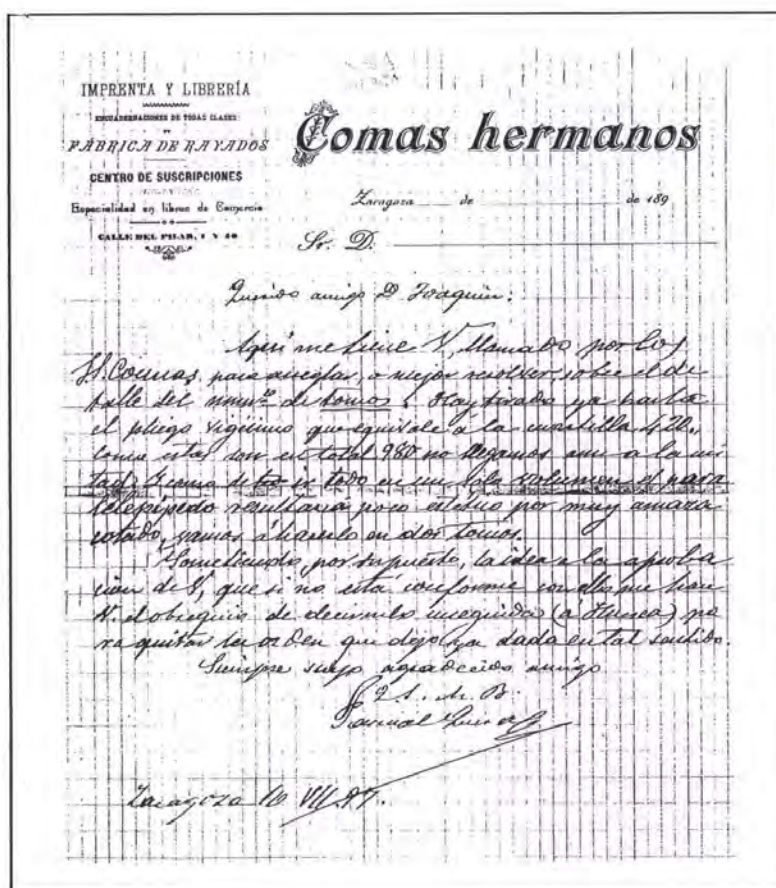 IMPRENTA Y LIBRERÍA
ENCUADERNACIONES DE TODAS CLASES
FÁBRICA DE RAYADOS
CENTRO DE SUSCRIPCIONES
Especialidad en libros de Comercio
CALLE DEL PILAR, 1 Y
Comas hermanos
Zaragoza de de 189
Sr. D.
Querido amigo D Joaquin:
Aquí me tiene V, llamado por los
SS. Comas, para arreglar, o mejor resolver, sobre el de
talle del numº de tomos. Hay tirado ya hasta
el pliego vigésimo que equivale a la cuartilla 420.,
como estas son en total 980 no llegamos aun a la mi
tad. Y como de ir todo en un solo volumen el para
lelepípedo resultaría poco estético por muy amaza
cotado, vamos á hacerlo en dos tomos.
Sometiendo, por supuesto, la idea a la aproba
cion de V, que si no está conforme con ello me hará
V. el obsequio de decirmelo enseguida (á Huesca) pa
ra quitar la orden que dejo ya dada en tal sentido.
Siempre suyo agradecido amigo
Q. S. M. B.
Pascual
Zaragoza 10 VII 97.